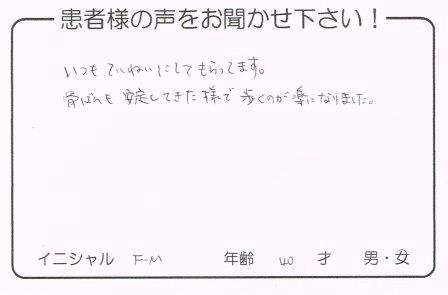 患者様の声をお聞かせ下さい！
いつもていねいにしてもらってます。
骨ばんも安定してきた様で歩くのが楽になりました。
イニシャル F.M 年齢 40 才 男・女